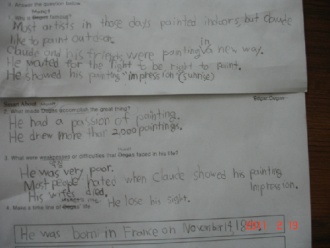 1. Answer the question below.
Monet's
Why is painting?
Most artists in those days painted indoors, but Claude
like to paint outdoor.
in
Claude and his frings were panting a new way.
He waited for the light to be right to paint.
He showed his painting "impression (sunrise)
2. What made accomplish the great thing?
He had a passion of painting.
He drew more than 2,000 paintings.
3. What were or difficulties that faced in his life?
He was very poor.
Most people hated when Claude showed his painting
Impression.
His wife died.
He lose his sight.
4. Make a time line of life.
He was born in France on November 14, 18